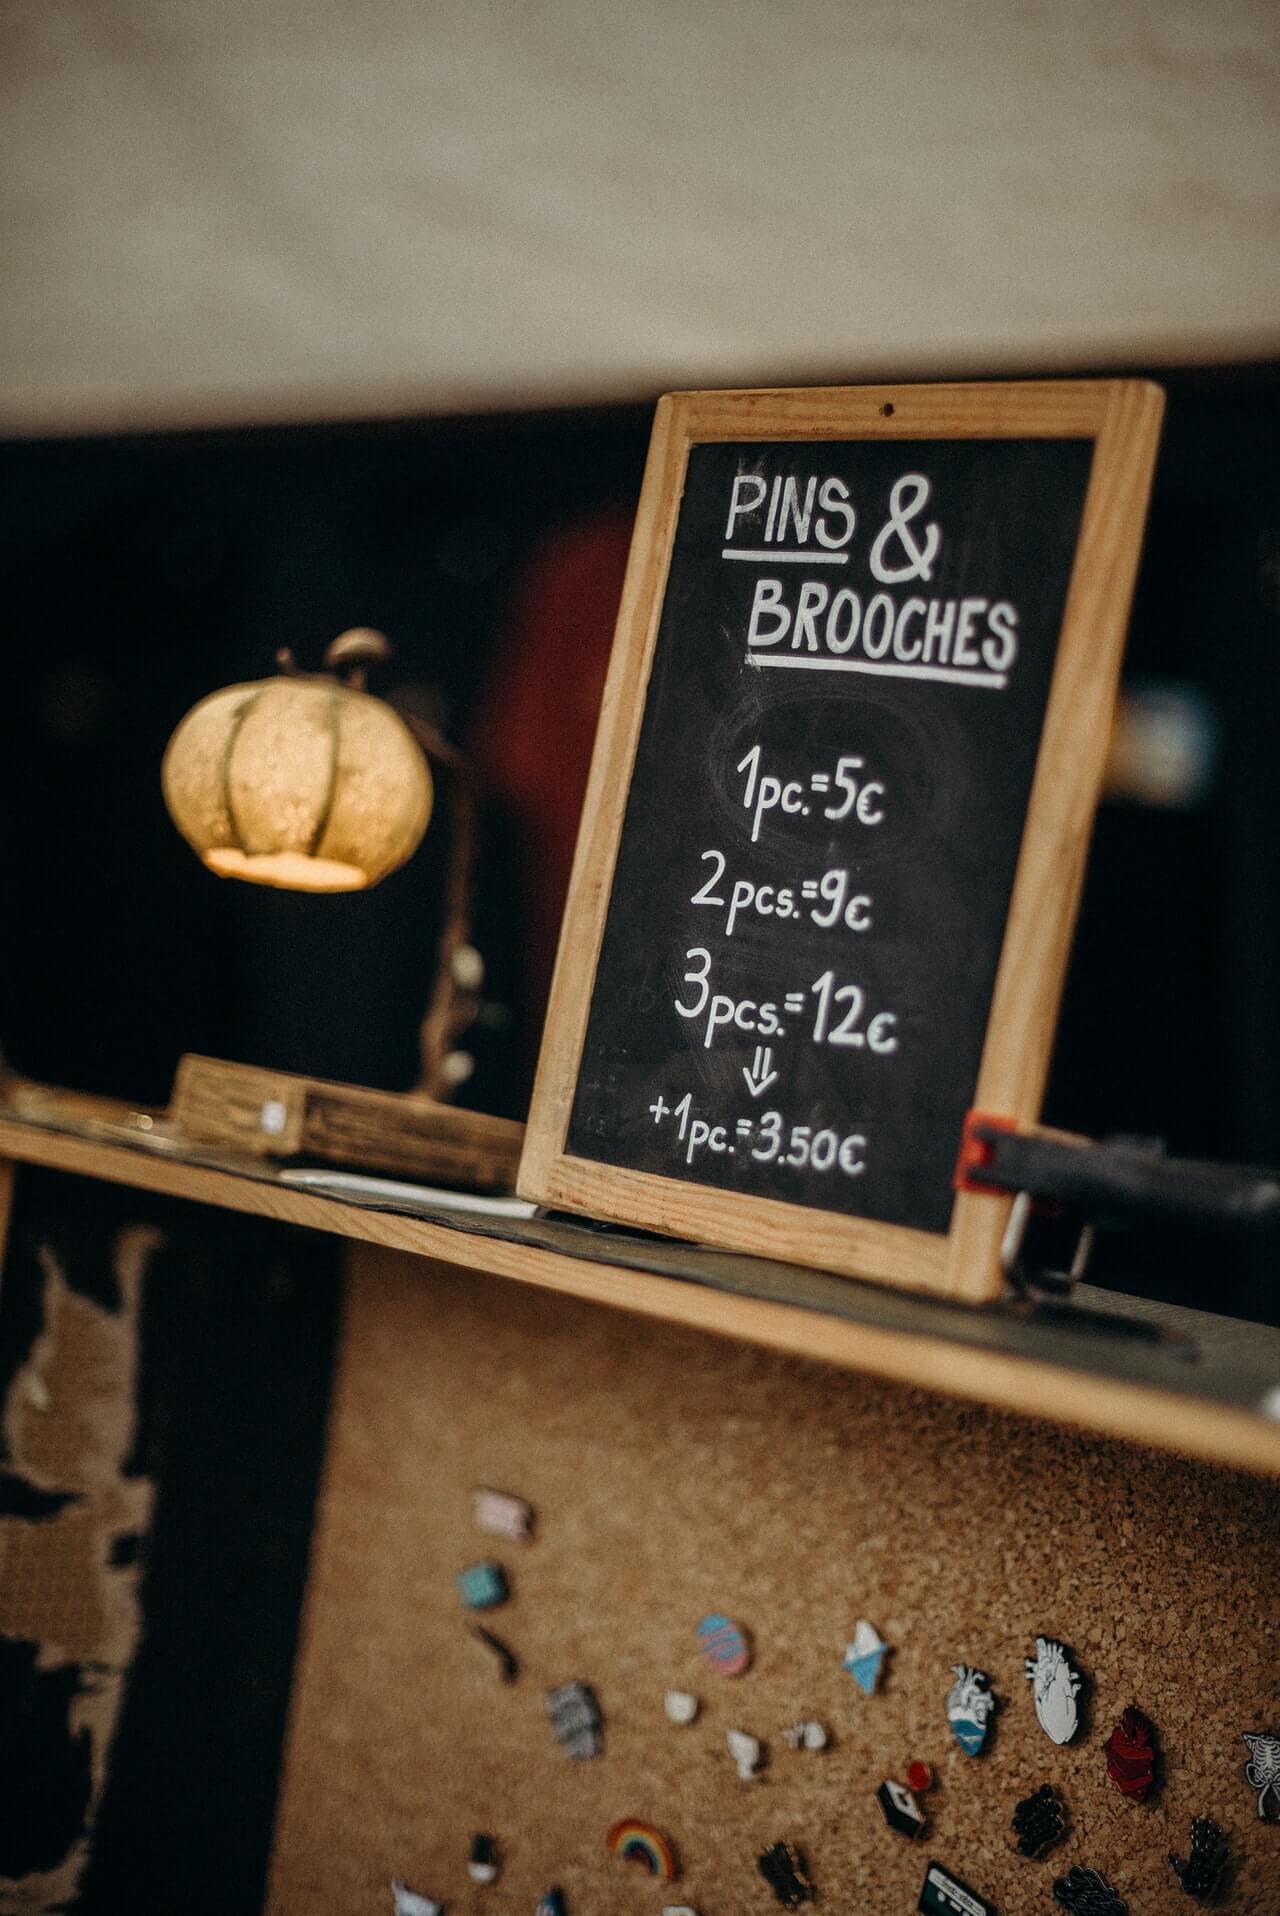 PINS &
BROOCHES
1pc.=5€
2pcs.=9€
3pcs.=12€
⇓
+1pc.=3.50€